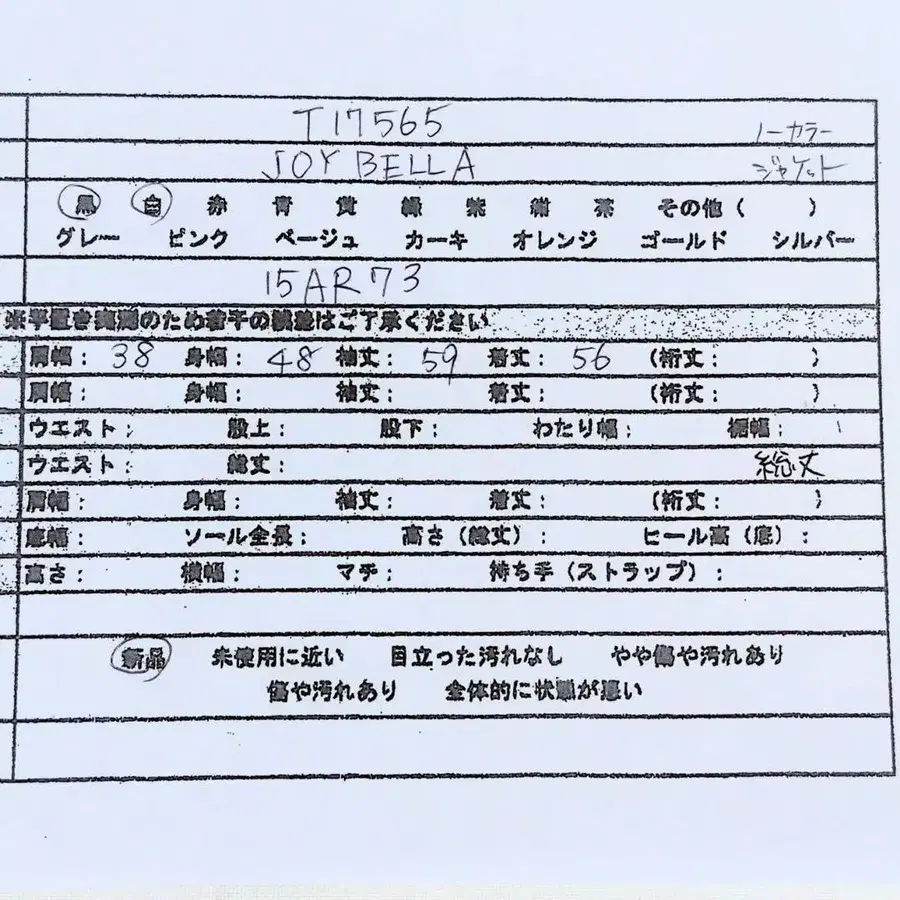 T17565 ノーカラー
JOY BELLA ジャケット
黒 白 赤 青 黄 緑 紫 紺 茶 その他（ ）
グレー ピンク ベージュ カーキ オレンジ ゴールド シルバー
15AR73
※平置き実測のため若干の誤差はご了承ください
肩幅： 38 身幅： 48 袖丈： 59 着丈： 56 （裄丈： ）
肩幅： 身幅： 袖丈： 着丈： （裄丈： ）
ウエスト： 股上： 股下： わたり幅： 裾幅：
ウエスト： 総丈： 総丈
肩幅： 身幅： 袖丈： 着丈： （裄丈： ）
底幅： ソール全長： 高さ（総丈）： ヒール高（底）：
高さ： 横幅： マチ： 持ち手（ストラップ）：
新品 未使用に近い 目立った汚れなし やや傷や汚れあり
傷や汚れあり 全体的に状態が悪い